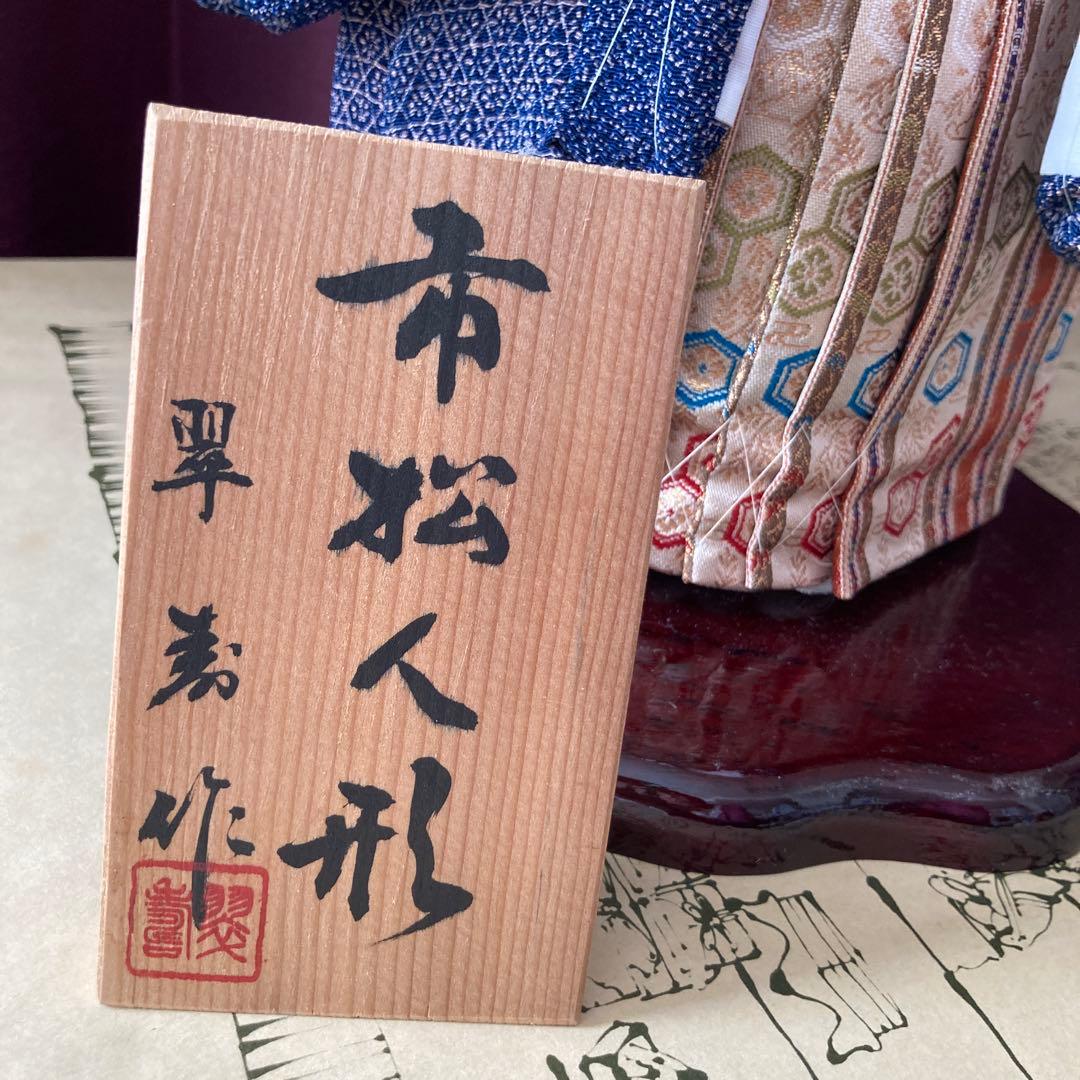 市松人形
翠寿作
翠壽